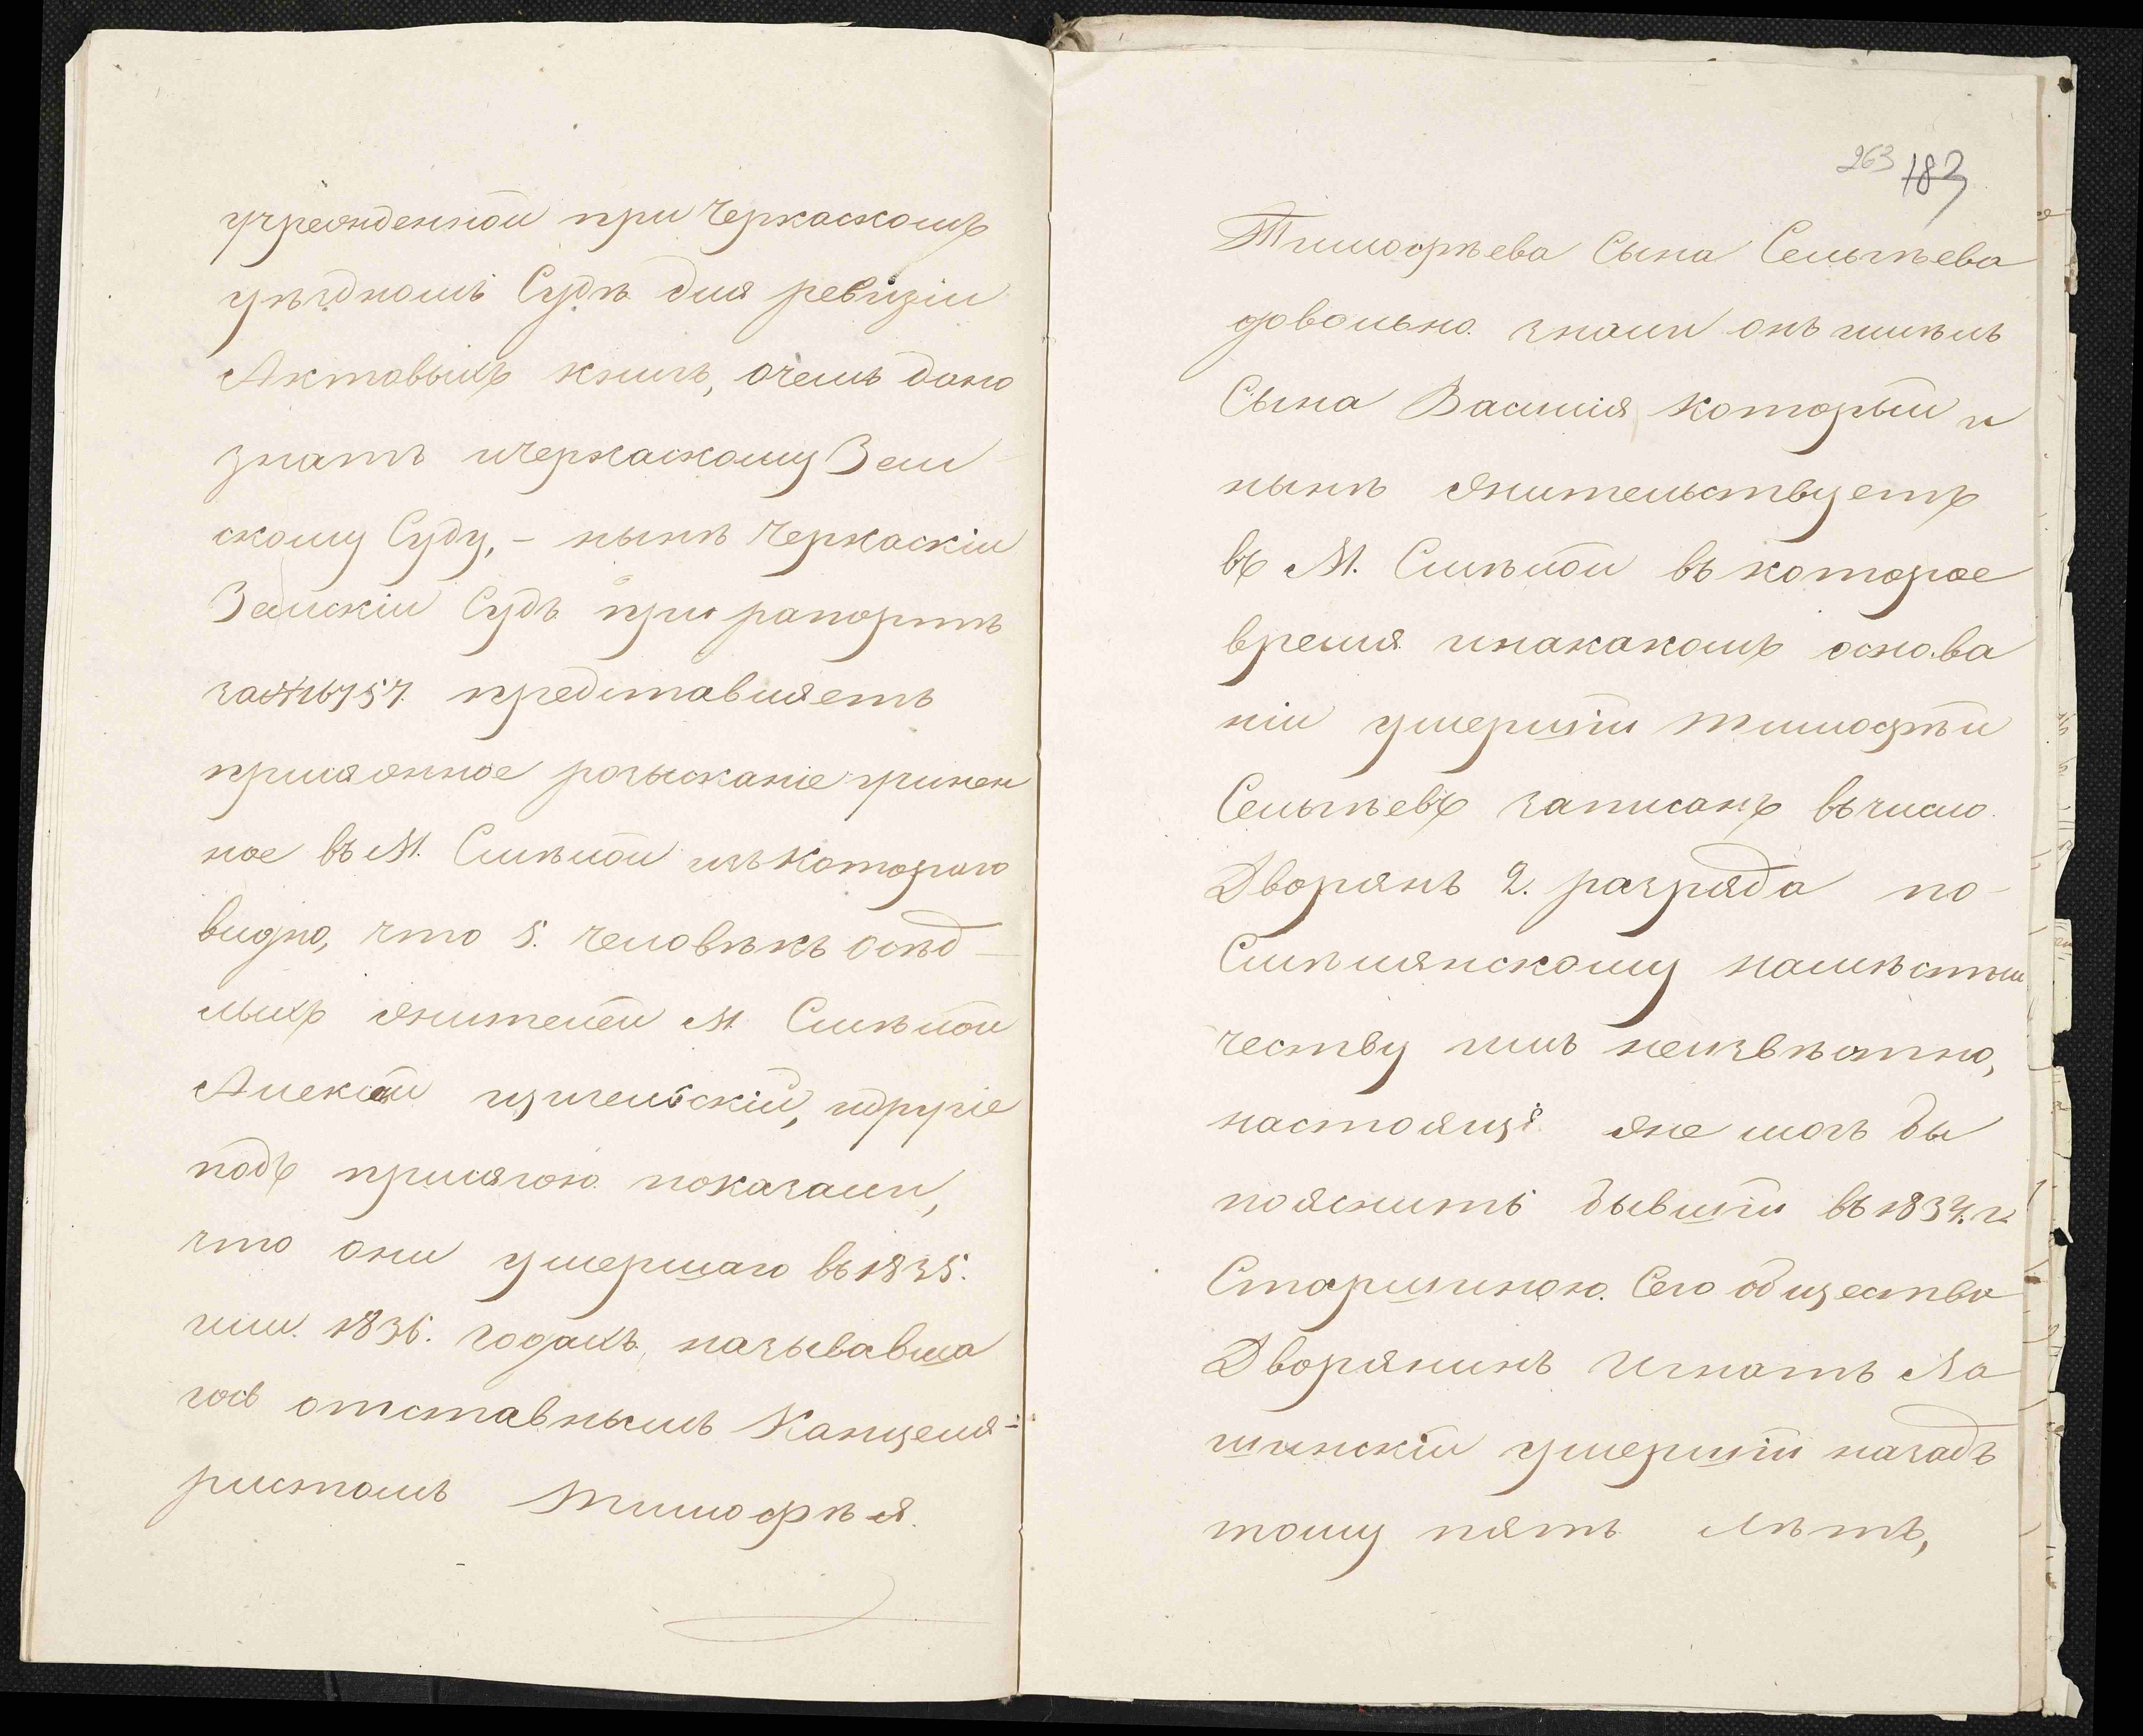 учрежденной при Черкаскомъ
уѣздномъ Судѣ для ревизіи
Актовыхъ книгъ, очемъ дано
знать ичеркаскому Зем
скому Суду, – нынѣ Черкаскій
Земскій Судъ при рапортѣ
за№16757. представляетъ
присяжное розысканіе учинен
ное въ М. Смѣлой изъ котораго
видно, что 5. человѣкъ осѣд–
лыхъ жителей М. Смѣлой
Алексѣй идругіе
подъ присягою показали,
что они умершаго въ 1835.
или. 1836. годахъ, называвша
гось отставнымъ Канцеля-
ристомъ Тимофѣя.
263 183
Тимофѣева Сына Сельгѣева
довольно знали онъ имѣлъ
Сына Василія который и
нынѣ жительствуетъ
въ М. Смѣлой въ которое
время инакакомъ основа
ніи умершій Тимофѣй
Сельгѣевъ записанъ въчисло
Дворянъ 2. разряда по-
Смѣлянскому намѣстни
честву имъ неизвѣстно,
настоящѣ же могъ бы
пояснить бывшій въ 1834. г.
Старшиною. Сего общества
Дворянинъ Игнатъ Ля
шинскій умершій назадъ
тому пять лѣтъ,